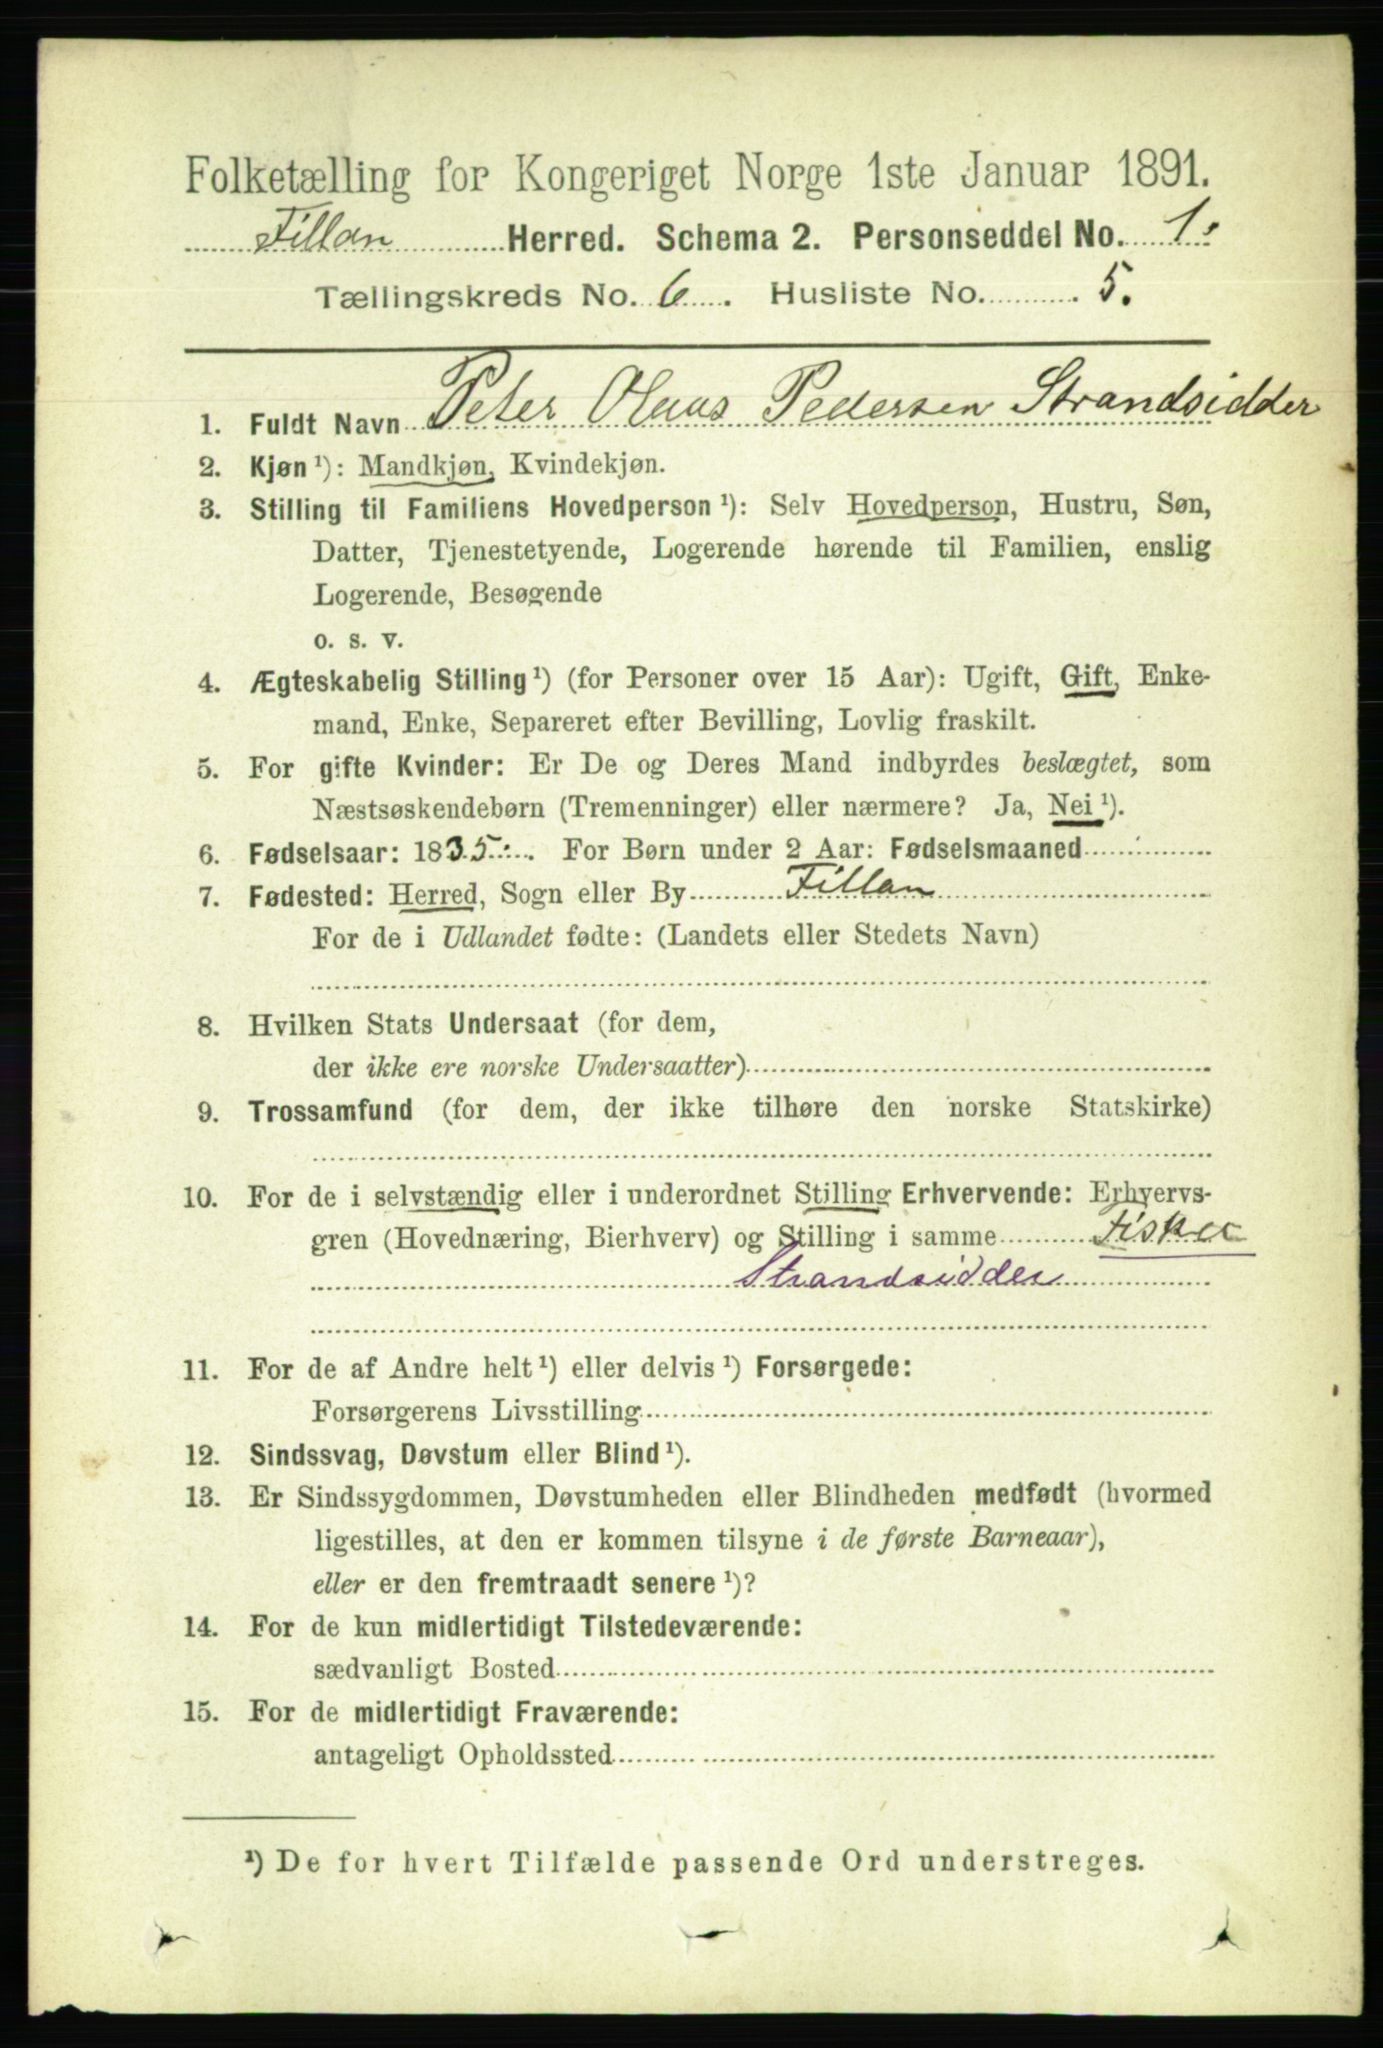 Folketælling for Kongeriget Norge 1ste Januar 1891.
Fillan Herred. Schema 2. Personseddel No. 1.
Tællingskreds No. 6. Husliste No. 5.
1. Fuldt Navn Peter Olaus Pedersen Strandsidder
2. Kjøn ¹): Mandkjøn, Kvindekjøn.
3. Stilling til Familiens Hovedperson ¹): Selv Hovedperson, Hustru, Søn,
Datter, Tjenestetyende, Logerende hørende til Familien, enslig
Logerende, Besøgende
o. s. v.
4. Ægteskabelig Stilling ¹) (for Personer over 15 Aar): Ugift, Gift, Enke-
mand, Enke, Separeret efter Bevilling, Lovlig fraskilt.
5. For gifte Kvinder: Er De og Deres Mand indbyrdes beslægtet, som
Næstsøskendebørn (Tremenninger) eller nærmere? Ja, Nei ¹).
6. Fødselsaar: 1835. For Børn under 2 Aar: Fødselsmaaned
7. Fødested: Herred, Sogn eller By Fillan
For de i Udlandet fødte: (Landets eller Stedets Navn)
8. Hvilken Stats Undersaat (for dem,
der ikke ere norske Undersaatter)
9. Trossamfund (for dem, der ikke tilhøre den norske Statskirke)
10. For de i selvstændig eller i underordnet Stilling Erhvervende: Erhvervs-
gren (Hovednæring, Bierhverv) og Stilling i samme Fisker
Strandsidder
11. For de af Andre helt ¹) eller delvis ¹) Forsørgede:
Forsørgerens Livsstilling
12. Sindssvag, Døvstum eller Blind ¹).
13. Er Sindssygdommen, Døvstumheden eller Blindheden medfødt (hvormed
ligestilles, at den er kommen tilsyne i de første Barneaar),
eller er den fremtraadt senere ¹)?
14. For de kun midlertidigt Tilstedeværende:
sædvanligt Bosted
15. For de midlertidigt Fraværende:
antageligt Opholdssted
¹) De for hvert Tilfælde passende Ord understreges.